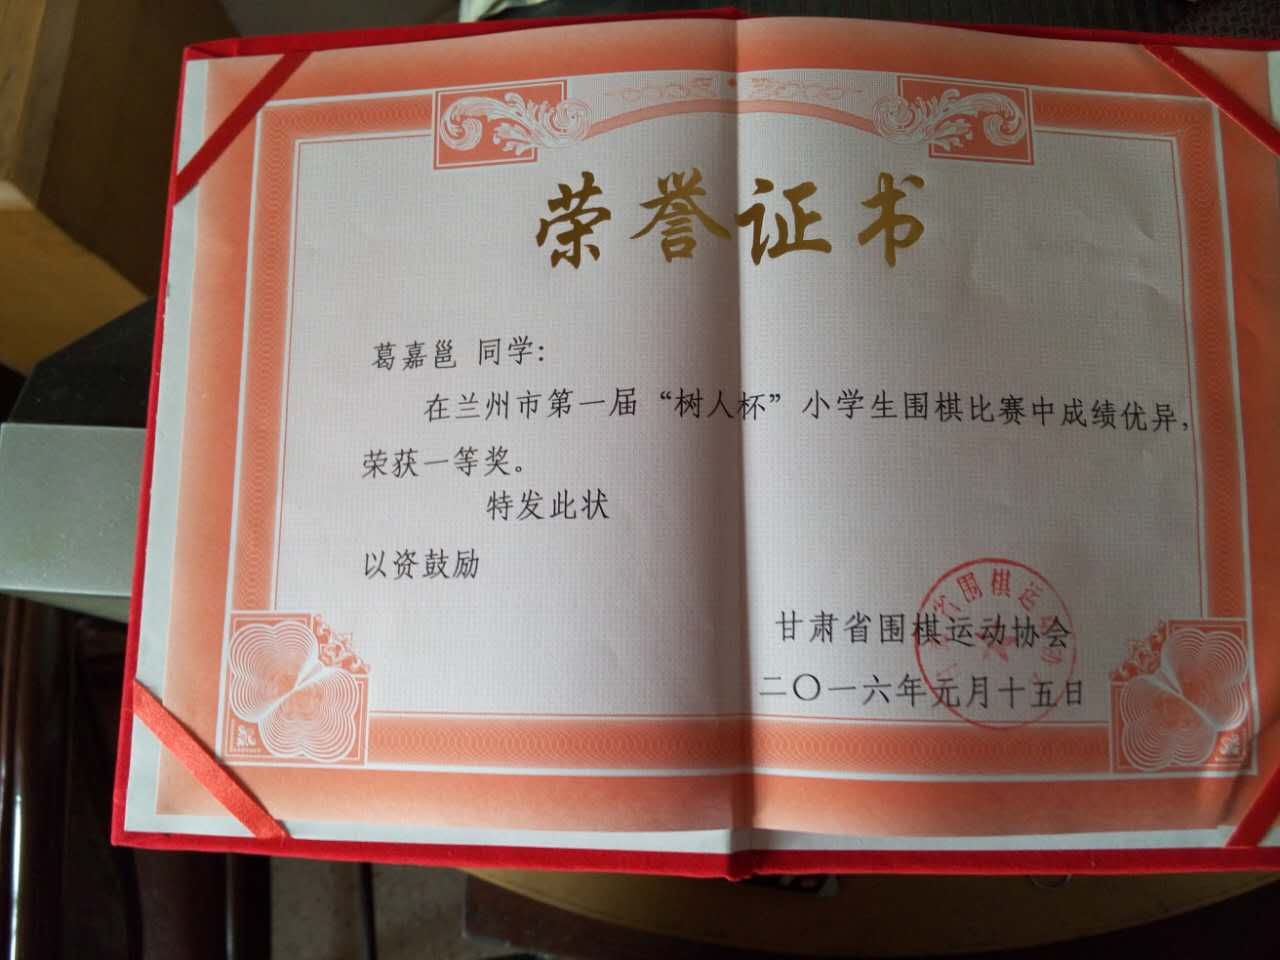 荣誉证书
葛嘉邕 同学:
在兰州市第一届“树人杯”小学生围棋比赛中成绩优异,
荣获一等奖。
特发此状
以资鼓励
甘肃省围棋运动协会
二〇一六年元月十五日
省围棋运动